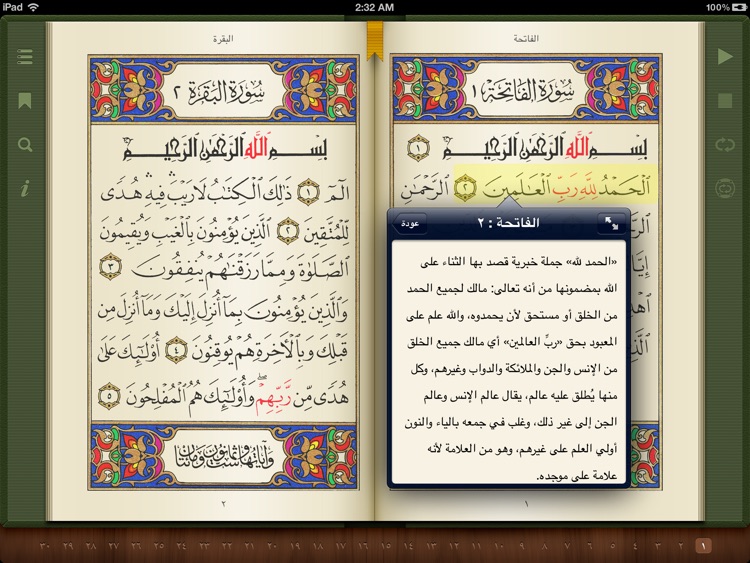 iPad
2:32 AM
100%
الفاتحة
سُورَةُ الفَاتِحَةِ ١
بِسْمِ ٱللَّهِ ٱلرَّحْمَٰنِ ٱلرَّحِيمِ ١
ٱلْحَمْدُ لِلَّهِ رَبِّ ٱلْعَٰلَمِينَ ٢ ٱلرَّحْمَٰنِ
عودة
الفاتحة : ٢
«الحمد لله» جملة خبرية قصد بها الثناء على
الله بمضمونها من أنه تعالى: مالك لجميع الحمد
من الخلق أو مستحق لأن يحمدوه، والله علم على
المعبود بحق «ربِّ العالمين» أي مالك جميع الخلق
من الإنس والجن والملائكة والدواب وغيرهم، وكل
منها يُطلق عليه عالم، يقال عالم الإنس وعالم
الجن إلى غير ذلك، وغلب في جمعه بالياء والنون
أولي العلم على غيرهم، وهو من العلامة لأنه
علامة على موجده.
١
البقرة
سُورَةُ البَقَرَةِ ٢
بِسْمِ ٱللَّهِ ٱلرَّحْمَٰنِ ٱلرَّحِيمِ
الٓمٓ ١ ذَٰلِكَ ٱلْكِتَٰبُ لَا رَيْبَ ۛ فِيهِ ۛ هُدًى
لِّلْمُتَّقِينَ ٢ ٱلَّذِينَ يُؤْمِنُونَ بِٱلْغَيْبِ وَيُقِيمُونَ
ٱلصَّلَوٰةَ وَمِمَّا رَزَقْنَٰهُمْ يُنفِقُونَ ٣
وَٱلَّذِينَ يُؤْمِنُونَ بِمَآ أُنزِلَ إِلَيْكَ وَمَآ أُنزِلَ مِن
قَبْلِكَ وَبِٱلْءَاخِرَةِ هُمْ يُوقِنُونَ ٤ أُو۟لَٰٓئِكَ عَلَىٰ
هُدًى مِّن رَّبِّهِمْ ۖ وَأُو۟لَٰٓئِكَ هُمُ ٱلْمُفْلِحُونَ ٥
وآياتها ست وثمانون ومئتان
٢
١ ٢ ٣ ٤ ٥ ٦ ٧ ٨ ٩ ١٠ ١١ ١٢ ١٣ ١٤ ١٥ ١٦ ١٧ ١٨ ١٩ ٢٠ ٢١ ٢٢ ٢٣ ٢٤ ٢٥ ٢٦ ٢٧ ٢٨ ٢٩ ٣٠